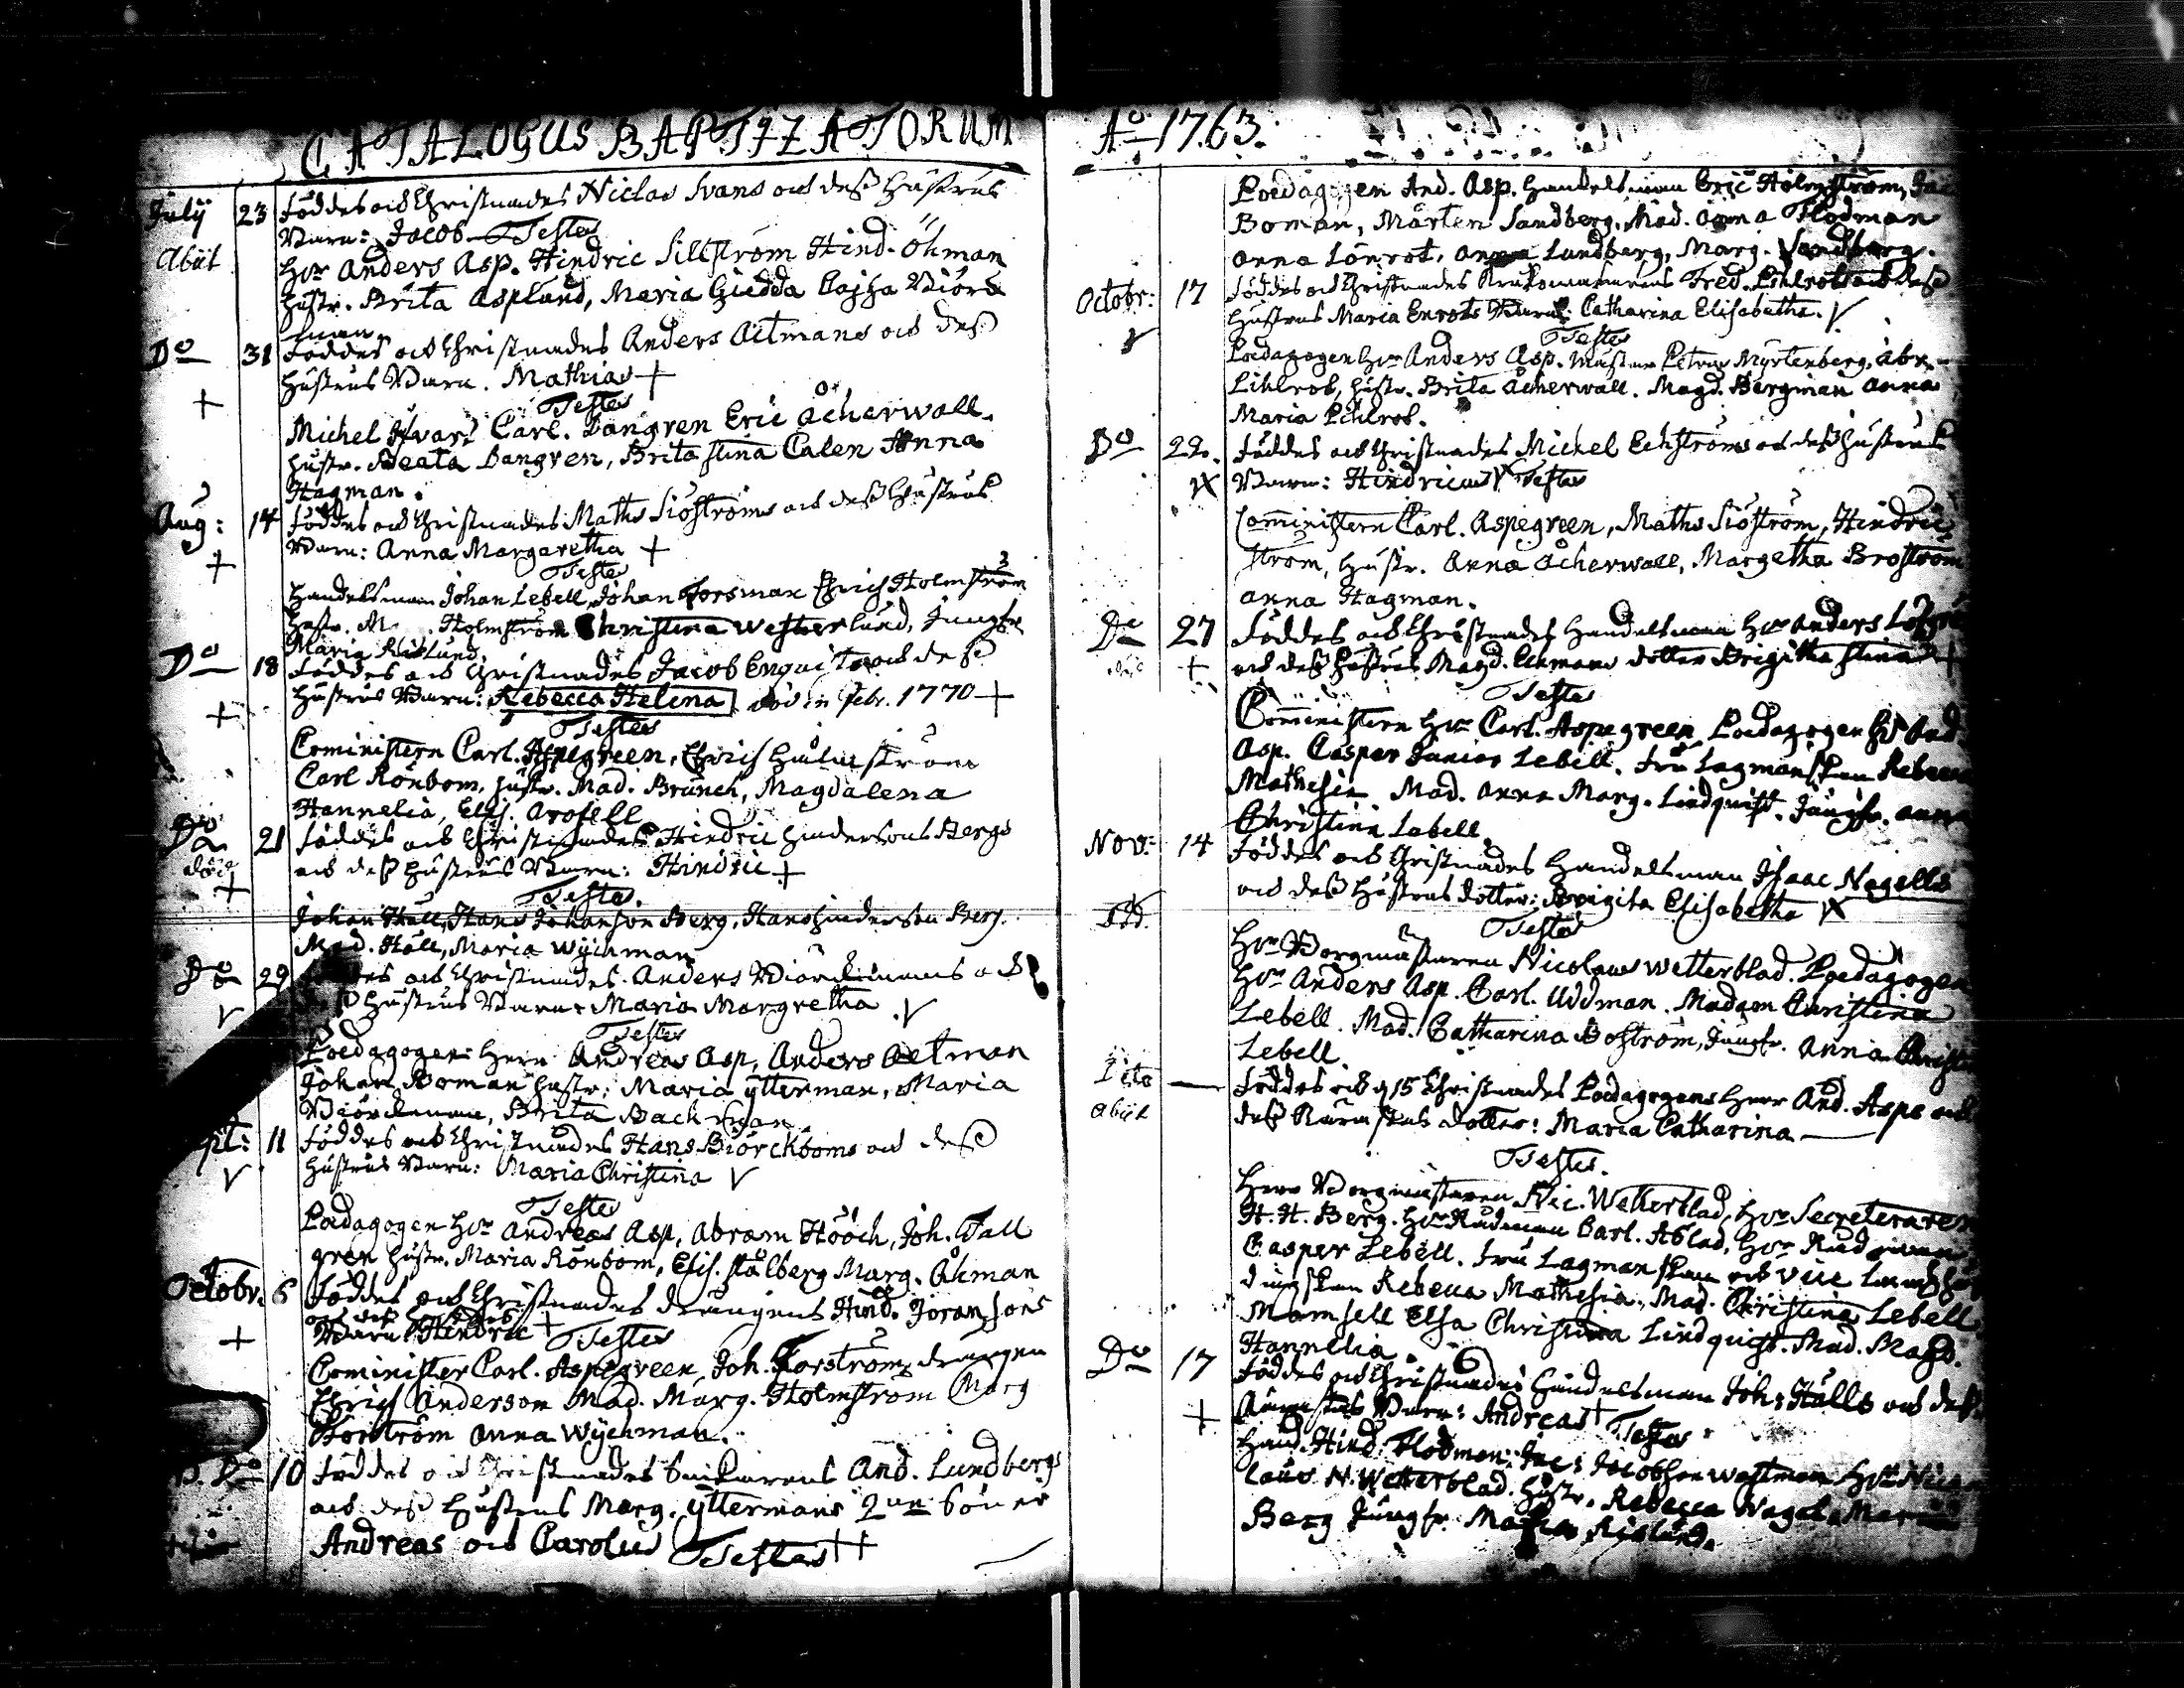 CATALOGUS BAPTIZATORUM
July 23 föddes och Christnades Niclas Svans och deß hustrus
Abiit Barn: Jacob Testes
Hr Anders Asp. Hindric Sillström Hind. Öhman
hustr. Brita Asplund, Maria Giedda Cajsa Biörck
man
Do 31 föddes och Christnades Anders Aitmans och deß
hustrus Barn. Mathias +
+ Testes
Michel Carl. Dangren Eric Åcherwall
hustr. Beata Dangren, Brita Stina Calen Anna
Hagman.
Aug: 14 föddes och Christnades Maths Siöströms och deß hustrus
Barn: Anna Margaretha +
+ Testes
Handelsman Johan Lebell Johan Forsman Ehrich Holmström
hustr. M. Holmström Christina Westerlund, Jungfr
Maria
Do 18 föddes och Christnades Jacob Enquists och deß
hustrus Barn: Rebecca Helena död in Febr. 1770 +
+ Testes
Cministern Carl. Aspegreen, Ehrich Holmström
Carl Rönbom, hustr. Mad. Brunck, Magdalena
Hannelia, Elis. Arosell
Do 21 föddes och Christnades Hindric Hindersons Bergs
död och deß hustrus Barn: Hindric +
+ Testes.
Johan Häll, Hans Johanson Berg, Hans Hinderson Berg.
Mad. Häll, Maria Wychman
Do 29 och Christnades Anders Biörckmans och
V hustrus Barn: Maria Margretha V
Testes
Poedagogen Herr Andreas Asp, Anders Aitman
Johan Boman hustr: Maria Ytterman, Maria
Biörckman, Brita Backman.
pt: 11 föddes och Christnades Hans Biörckboms och deß
V hustrus Barn: Maria Christina V
Testes
Poedagogen Hr Andreas Asp, Abram Hööch, Joh. Tall
gren hustr. Maria Rönbom, Elis. Stålberg Marg. Öhman
Octobr. 6 föddes och Christnades drängens Hind. Joransons
och deß hustrus
+ Barn Hindric + Testes
Cminister Carl. Aspegreen, Joh. Forström, drängen
Ehrich Anderson Mad. Marg. Holmström Marg
Forström Anna Wychman.
Do 10 föddes och Christnades Snikarens And. Lundbergs
och deß hustrus Marg. Yttermans 2ne Söner
Andreas och Carolus Testes ++
Ao 1763.
Poedagogen And. Asp. Handelsman Eric Holmström, Jac
Boman, Mårten Sandberg, Mad. Anna Flodman
Anna Lönrot, Anna Lundberg, Marg. Sandberg.
Octobr: 17 föddes och Christnades Krukomakarens Fred. Lihlrots och deß
hustrus Maria Enrots Barn: Catharina Elisabetha. V
V Testes
Poedagogen Hr Anders Asp. Mästaren Petrus Myrtenberg, Abr.
Lihlrot, hustr. Brita Åcherwall. Magd. Bergman Anna
Maria Lihlrot.
Do 22. föddes och Christnades Michel Eckströms och deß hustrus
Barn: Hindricus Testes
Cominstern Carl. Aspegreen, Maths Siöström, Hindric
ström, hustr. Anna Åcherwall, Margetha Broström
Anna Hagman.
Do 27 föddes och Christnades Handelsman Hr Anders
+ och deß hustrus Magd. Eckmans dotter Brigitha Stina +
Testes
Comministern Hr Carl. Aspegreen Poedagogen Hr And.
Asp. Casper Junior Lebell. Fru Lagmanskan Rebecca
Mathesia Mad. Anna Marg. Lindquist. Jungfr. Anna
Christina Lebell.
Nov: 14 föddes och Christnades Handelsman Isaac Nagells
och deß hustrus dotter: Brigita Elisabetha
Testes
Hr Borgmästaren Nicolaus Wetterblad. Poedagogen
Hr Anders Asp. Carl. Uddman. Madam Christina
Lebell. Mad. Catharina Boström, Jungfr. Anna Christ
Lebell.
Dito föddes och d 15 Christnades Poedagogens Herr And. Asps och
Abiit deß Käraestas dotter: Maria Catharina
Testes.
Herr Borgmästaren Nic. Wetterblad, Hr Secreteraren
H. H. Berg. Hr Rådman Carl. Ablad, Hr Rådman
Casper Lebell. Fru Lagmanskan och Vice Landshöf
dingskan Rebecca Mathesia, Mad. Christina Lebell
Mamsell Elsa Christina Lindquist. Mad. Magd.
Hannelia.
Do 17 föddes och Christnades Handelsman Joh: Hälls och deß
+ Käraestas Barn: Andreas + Testes
Hand. Hind. Flodman: Jac: Jacobson Wastman Hr Nico
laus N. Wetterblad. Hustr. Rebecca Nagel, Maria
Berg Jungfr. Maria